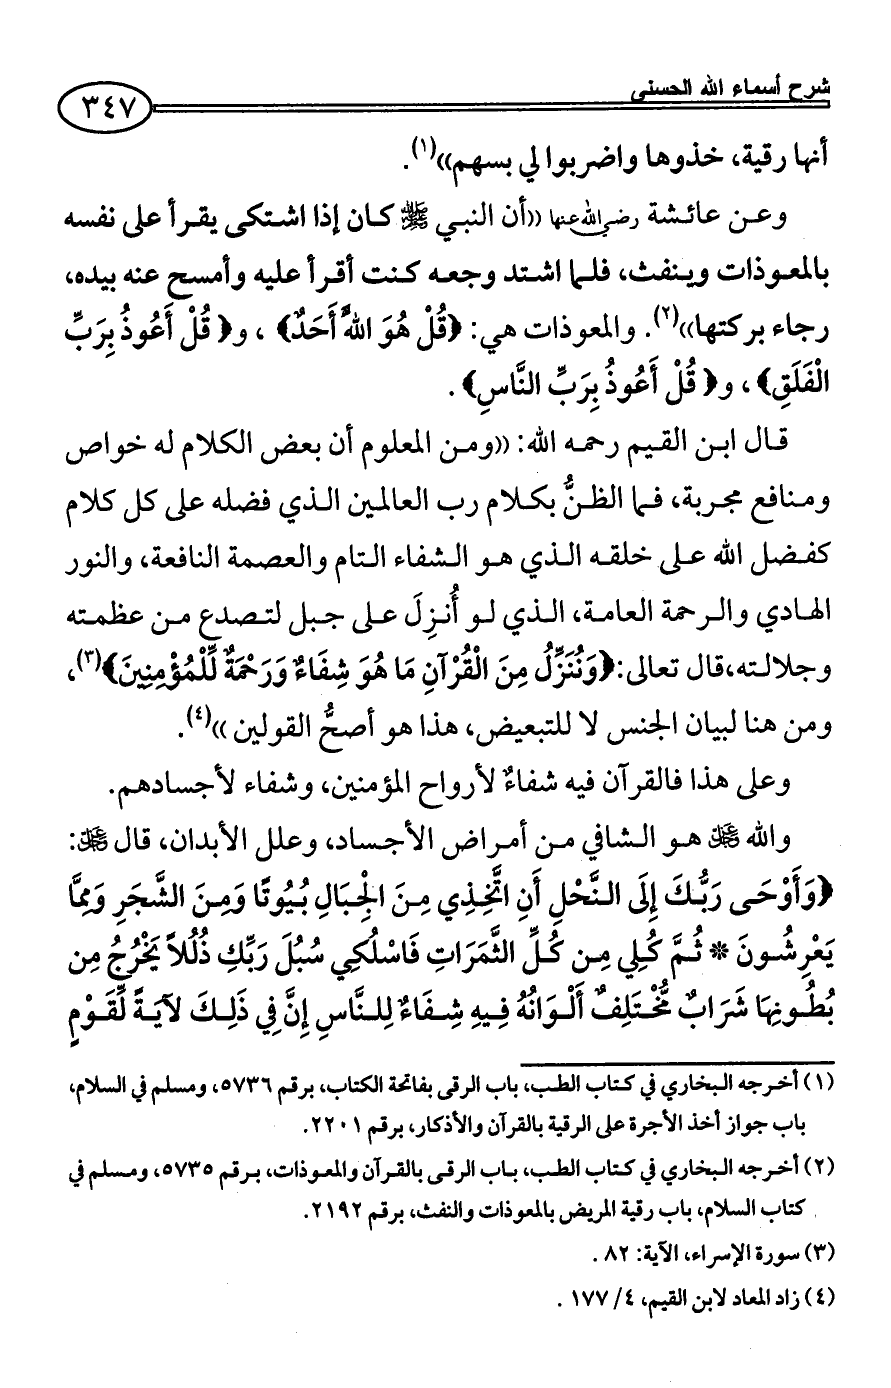 شرح أسماء الله الحسنى
٣٤٧
أنها رقية، خذوها واضربوا لي بسهم»(١).
وعن عائشة رضي الله عنها «أن النبي ﷺ كان إذا اشتكى يقرأ على نفسه
بالمعوذات وينفث، فلما اشتد وجعه كنت أقرأ عليه وأمسح عنه بيده،
رجاء بركتها»(٢). والمعوذات هي: ﴿قُلْ هُوَ اللهُ أَحَدٌ﴾ ، و﴿ قُلْ أَعُوذُ بِرَبِّ
الْفَلَقِ﴾ ، و﴿ قُلْ أَعُوذُ بِرَبِّ النَّاسِ﴾ .
قال ابن القيم رحمه الله: «ومن المعلوم أن بعض الكلام له خواص
ومنافع مجربة، فما الظنُّ بكلام رب العالمين الذي فضله على كل كلام
كفضل الله على خلقه الذي هو الشفاء التام والعصمة النافعة، والنور
الهادي والرحمة العامة، الذي لو أُنزِلَ على جبل لتصدع من عظمته
وجلالته،قال تعالى:﴿وَنُنَزِّلُ مِنَ الْقُرْآنِ مَا هُوَ شِفَاءٌ وَرَحْمَةٌ لِّلْمُؤْمِنِينَ﴾(٣)،
ومن هنا لبيان الجنس لا للتبعيض، هذا هو أصحُّ القولين »(٤).
وعلى هذا فالقرآن فيه شفاءٌ لأرواح المؤمنين، وشفاء لأجسادهم.
والله هو الشافي من أمراض الأجساد، وعلل الأبدان، قال :
﴿وَأَوْحَى رَبُّكَ إِلَى النَّحْلِ أَنِ اتَّخِذِي مِنَ الْجِبَالِ بُيُوتًا وَمِنَ الشَّجَرِ وَمِمَّا
يَعْرِشُونَ * ثُمَّ كُلِي مِن كُلِّ الثَّمَرَاتِ فَاسْلُكِي سُبُلَ رَبِّكِ ذُلُلاً يَخْرُجُ مِن
بُطُونِهَا شَرَابٌ مُّخْتَلِفٌ أَلْوَانُهُ فِيهِ شِفَاءٌ لِلنَّاسِ إِنَّ فِي ذَلِكَ لآيَةً لِّقَوْمٍ
(١) أخرجه البخاري في كتاب الطب، باب الرقى بفاتحة الكتاب، برقم ٥٧٣٦، ومسلم في السلام،
باب جواز أخذ الأجرة على الرقية بالقرآن والأذكار، برقم ٢٢٠١.
(٢) أخرجه البخاري في كتاب الطب، باب الرقى بالقرآن والمعوذات، برقم ٥٧٣٥، ومسلم في
كتاب السلام، باب رقية المريض بالمعوذات والنفث، برقم ٢١٩٢.
(٣) سورة الإسراء، الآية: ٨٢ .
(٤) زاد المعاد لابن القيم، ٤/ ١٧٧ .